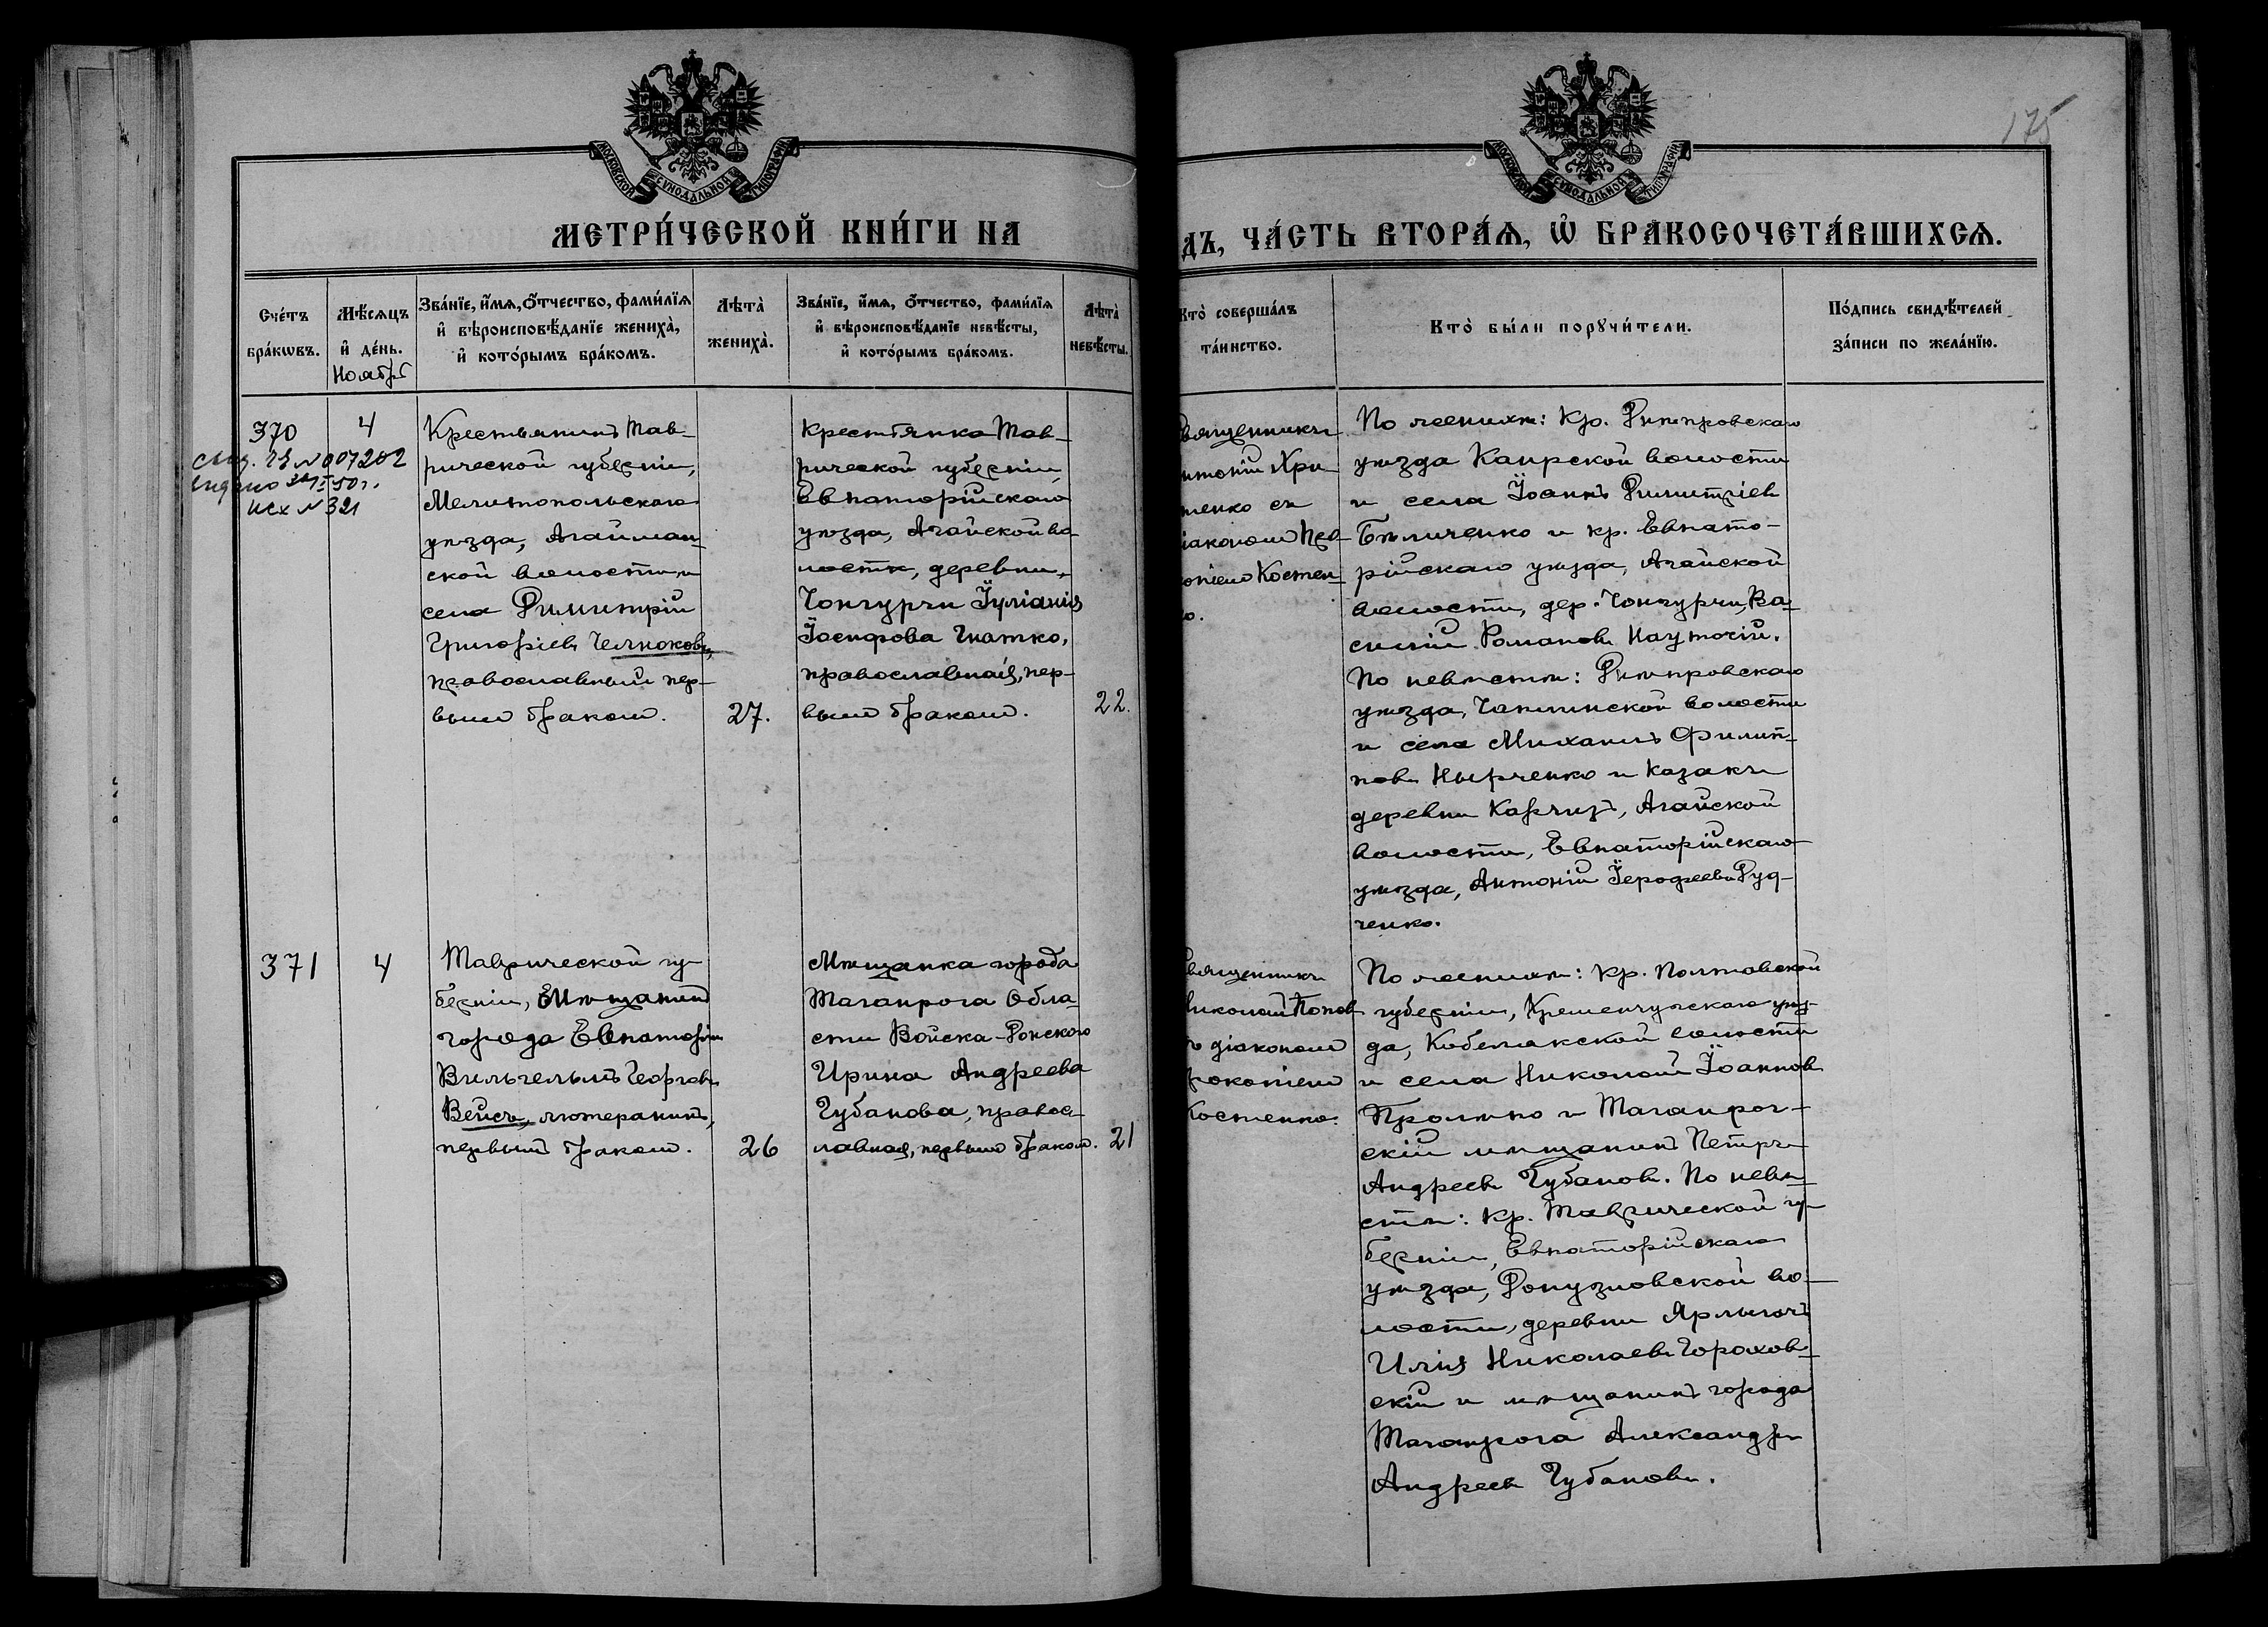 175
МОСКОВСКОЙ СѴНОДАЛЬНОЙ ТИПОГРАФІИ
МОСКОВСКОЙ СѴНОДАЛЬНОЙ ТИПОГРАФІИ
МЕТРИ́ЧЕСКОЙ КНИ́ГИ НА
ДЪ, ЧА́СТЬ ВТОРА́Ѧ, Ѡ҆ БРАКОСОЧЕТА́ВШИХСѦ.
Сче́тъ
бра́кѡвъ.
Мѣ́сѧцъ
и҆ де́нь.
Ноябрь
Зва́нїе, и҆́мѧ, ѻ҆́тчество, фами́лїѧ
и҆ вѣроисповѣ́данїе жениха̀,
и҆ кото́рымъ бра́комъ.
Лѣта̀
жениха̀.
Зва́нїе, и҆́мѧ, ѻ҆́тчество, фами́лїѧ
и҆ вѣроисповѣ́данїе невѣ́сты,
и҆ кото́рымъ бра́комъ.
Лѣта̀
невѣ́сты.
Кто̀ соверша́лъ
та́инство.
Кто̀ бы́ли порꙋчи́тели.
По́дпись свидѣ́телей
за́писи по жела́нїю.
370
№ 007202
исх № 321
4
Крестьянинъ Тав-
рической губерніи,
Мелитопольскаго
уѣзда, Агайман-
ской волости и
села Димитрій
Григоріевъ Челноковъ,
православный пер-
вымъ бракомъ.
27.
Крестьянка Тав-
рической губерніи,
Евпаторійскаго
уѣзда, Агайской во-
лости, деревни
Чонгурчи Іуліанія
Іосифова Гнатко,
православная, пер-
вымъ бракомъ.
22.
вященникъ
нтоній Хри
тенко съ
іакономъ Про-
опіемъ Костен-
о.
По женихѣ: Кр. Днѣпровскаго
уѣзда Каирской волости
и села Іоаннъ Димитріевъ
Бѣличенко и кр. Евпато-
рійскаго уѣзда, Агайской
волости, дер. Чонгурчи, Ва-
силій Романовъ Наумочій.
По невѣстѣ: Днѣпровскаго
уѣзда, Чаплинской волости
и села Михаилъ Филип-
повъ Нырченко и казакъ
деревни Карчизъ, Агайской
волости, Евпаторійскаго
уѣзда, Антоній Іерофеевъ Руд-
ченко.
371
4
Таврической гу-
берніи, Мѣщанинъ
города Евпаторіи
Вильгельмъ Георгіевъ
Вейсъ, лютеранинъ,
первымъ бракомъ.
26
Мѣщанка города
Таганрога Обла-
сти Войска-Донского
Ирина Андреева
Губанова, правос-
лавная, первымъ бракомъ.
21
вященникъ
иколай Попов
ъ діакономъ
рокопіемъ
Костенко.
По женихѣ: кр. Полтавской
губерніи, Кременчугскаго уѣз-
да, Кобелякской волости
и села Николай Іоанновъ
и Таганрог-
скій мѣщанинъ Петръ
Андреевъ Губановъ. По невѣ-
стѣ: Кр. Таврической гу-
берніи, Евпаторійскаго
уѣзда, Донузлавской во-
лости, деревни Ярлыгачъ
Илія Николаевъ Горохов-
скій и мѣщанинъ города
Таганрога Александръ
Андреевъ Губановъ.